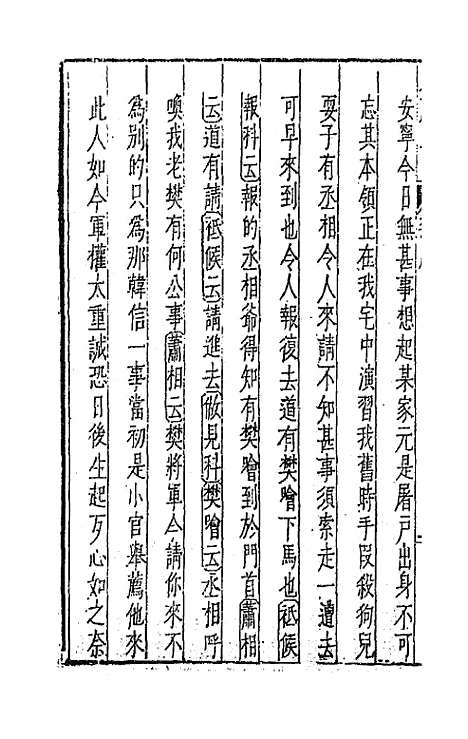 安寧今日無甚事想起某家元是屠戶出身不可
忘其本領正在我宅中演習我舊時手段殺狗兒
耍子有丞相令人來請不知甚事須索走一遭去
可早來到也令人報復去道有樊噲下馬也祗候
報科云報的丞相爺得知有樊噲到於門首蕭相
云道有請祗候云請進去做見科樊噲云丞相呼
喚我老樊有何公事蕭相云樊將軍今請你來不
為別的只為那韓信一事當初是小官舉薦他來
此人如今軍權太重誠恐日後生起歹心如之奈